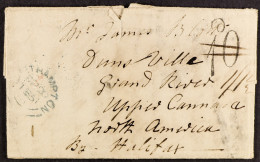 Mr James
Duns Ville
Grand River
Upper Cannada
North America
By Halifax
HAMPTON